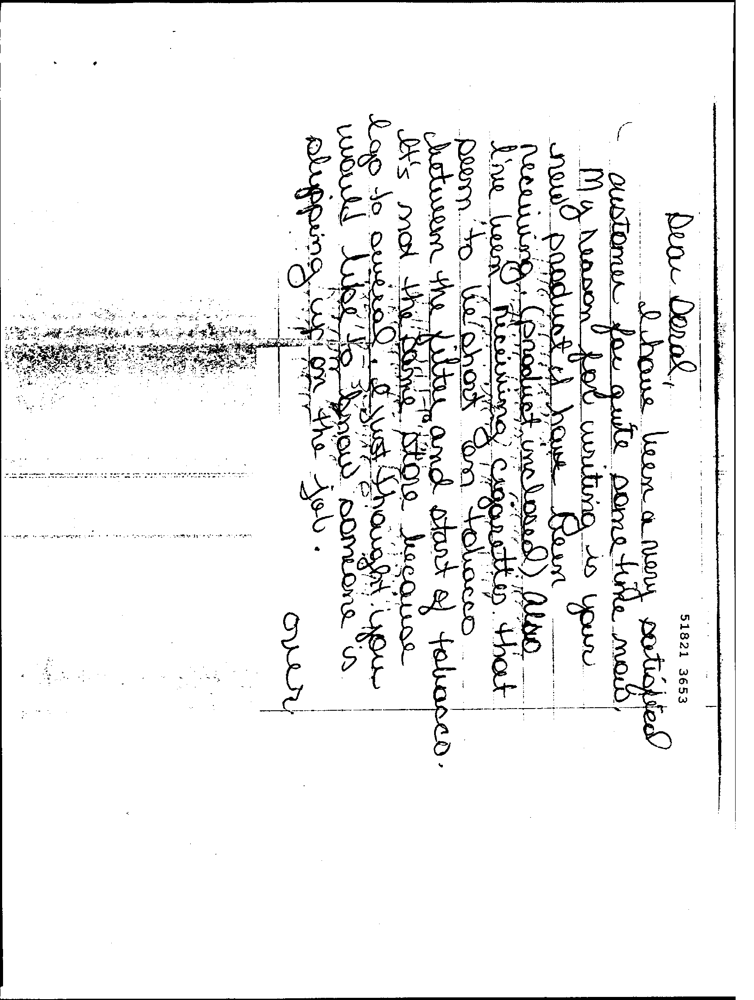 51821 3653
Dear Deral,
I have been a very satisfied
customer for quite some time now.
My reason for writing is your
new product I have been
receiving. (product inclosed) Also
I've been receiving cigarettes that
seem to be short on tobacco
between the filter and start of tobacco.
It's not the same store because
I go to several. I just thought you
would like to know someone is
slipping up on the job.
over